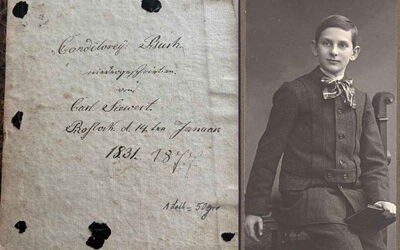 Conditorei Buch
niedergeschrieben
von
Carl Siewert.
Rostock d. 14ten Januar
1831. 18